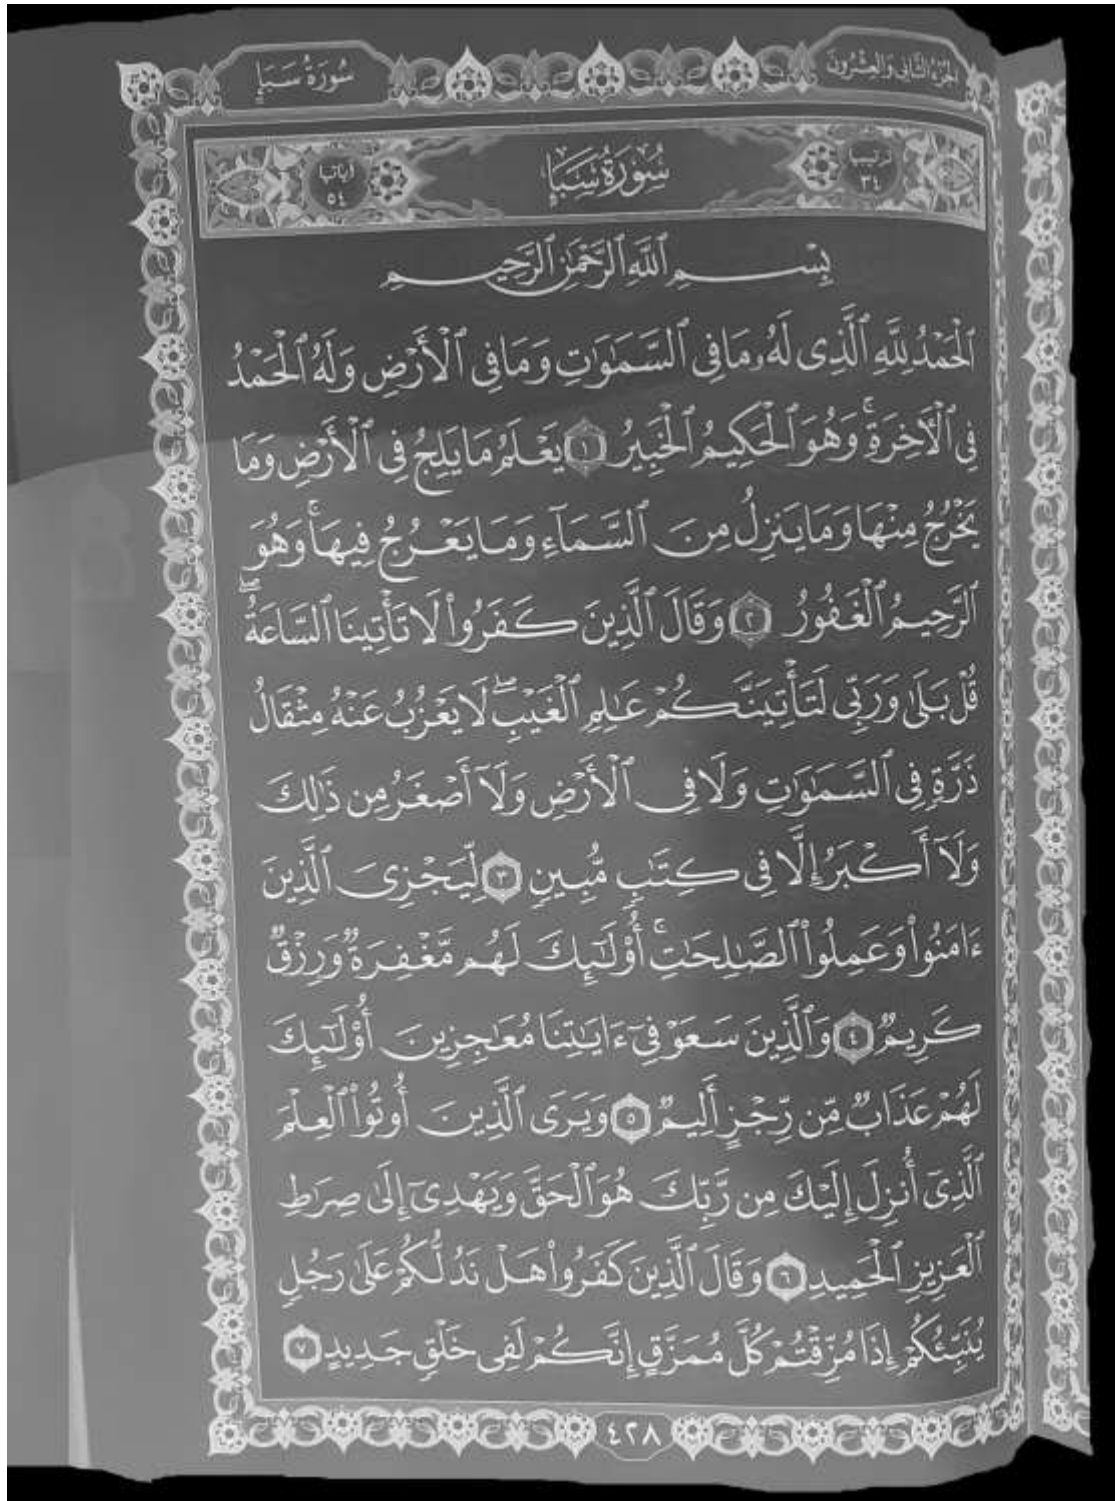 الجزء الثاني والعشرون
سُورَةُ سَبَإٍ
ترتيبها
٣٤
سُورَةُ سَبَإٍ
آياتها
٥٤
بِسْمِ ٱللَّهِ ٱلرَّحْمَٰنِ ٱلرَّحِيمِ
ٱلْحَمْدُ لِلَّهِ ٱلَّذِى لَهُۥ مَا فِى ٱلسَّمَٰوَٰتِ وَمَا فِى ٱلْأَرْضِ وَلَهُ ٱلْحَمْدُ
فِى ٱلْأَخِرَةِۚ وَهُوَ ٱلْحَكِيمُ ٱلْخَبِيرُ ١ يَعْلَمُ مَا يَلِجُ فِى ٱلْأَرْضِ وَمَا
يَخْرُجُ مِنْهَا وَمَا يَنزِلُ مِنَ ٱلسَّمَآءِ وَمَا يَعْرُجُ فِيهَاۚ وَهُوَ
ٱلرَّحِيمُ ٱلْغَفُورُ ٢ وَقَالَ ٱلَّذِينَ كَفَرُوا۟ لَا تَأْتِينَا ٱلسَّاعَةُۖ
قُلْ بَلَىٰ وَرَبِّى لَتَأْتِيَنَّكُمْ عَٰلِمِ ٱلْغَيْبِۖ لَا يَعْزُبُ عَنْهُ مِثْقَالُ
ذَرَّةٍ فِى ٱلسَّمَٰوَٰتِ وَلَا فِى ٱلْأَرْضِ وَلَآ أَصْغَرُ مِن ذَٰلِكَ
وَلَآ أَكْبَرُ إِلَّا فِى كِتَٰبٍ مُّبِينٍ ٣ لِّيَجْزِىَ ٱلَّذِينَ
ءَامَنُوا۟ وَعَمِلُوا۟ ٱلصَّٰلِحَٰتِۚ أُو۟لَٰٓئِكَ لَهُم مَّغْفِرَةٌ وَرِزْقٌ
كَرِيمٌ ٤ وَٱلَّذِينَ سَعَوْ فِىٓ ءَايَٰتِنَا مُعَٰجِزِينَ أُو۟لَٰٓئِكَ
لَهُمْ عَذَابٌ مِّن رِّجْزٍ أَلِيمٌ ٥ وَيَرَى ٱلَّذِينَ أُوتُوا۟ ٱلْعِلْمَ
ٱلَّذِىٓ أُنزِلَ إِلَيْكَ مِن رَّبِّكَ هُوَ ٱلْحَقَّ وَيَهْدِىٓ إِلَىٰ صِرَٰطِ
ٱلْعَزِيزِ ٱلْحَمِيدِ ٦ وَقَالَ ٱلَّذِينَ كَفَرُوا۟ هَلْ نَدُلُّكُمْ عَلَىٰ رَجُلٍ
يُنَبِّئُكُمْ إِذَا مُزِّقْتُمْ كُلَّ مُمَزَّقٍ إِنَّكُمْ لَفِى خَلْقٍ جَدِيدٍ ٧
٤٢٨